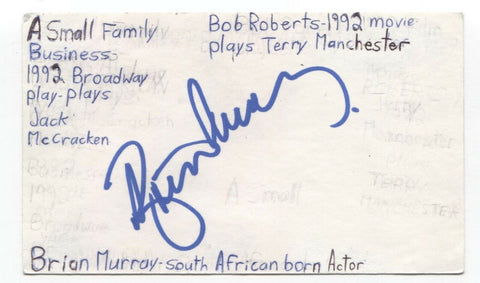 A Small Family
Business
1992 Broadway
play-plays
Jack
McCracken
Bob Roberts-1992 movie
plays Terry Manchester
Brian Murray
A Small
TERRY
MANCHESTER
Brian Murray-south African born Actor